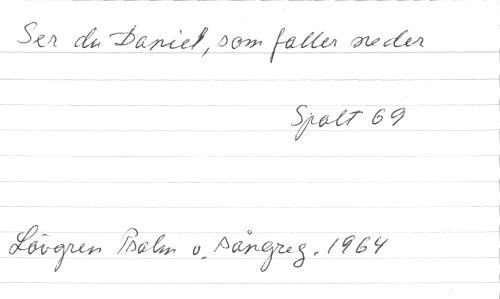 Ser du Daniel, som faller neder
Spalt 69
Lövgren Psalm o. sångreg. 1964